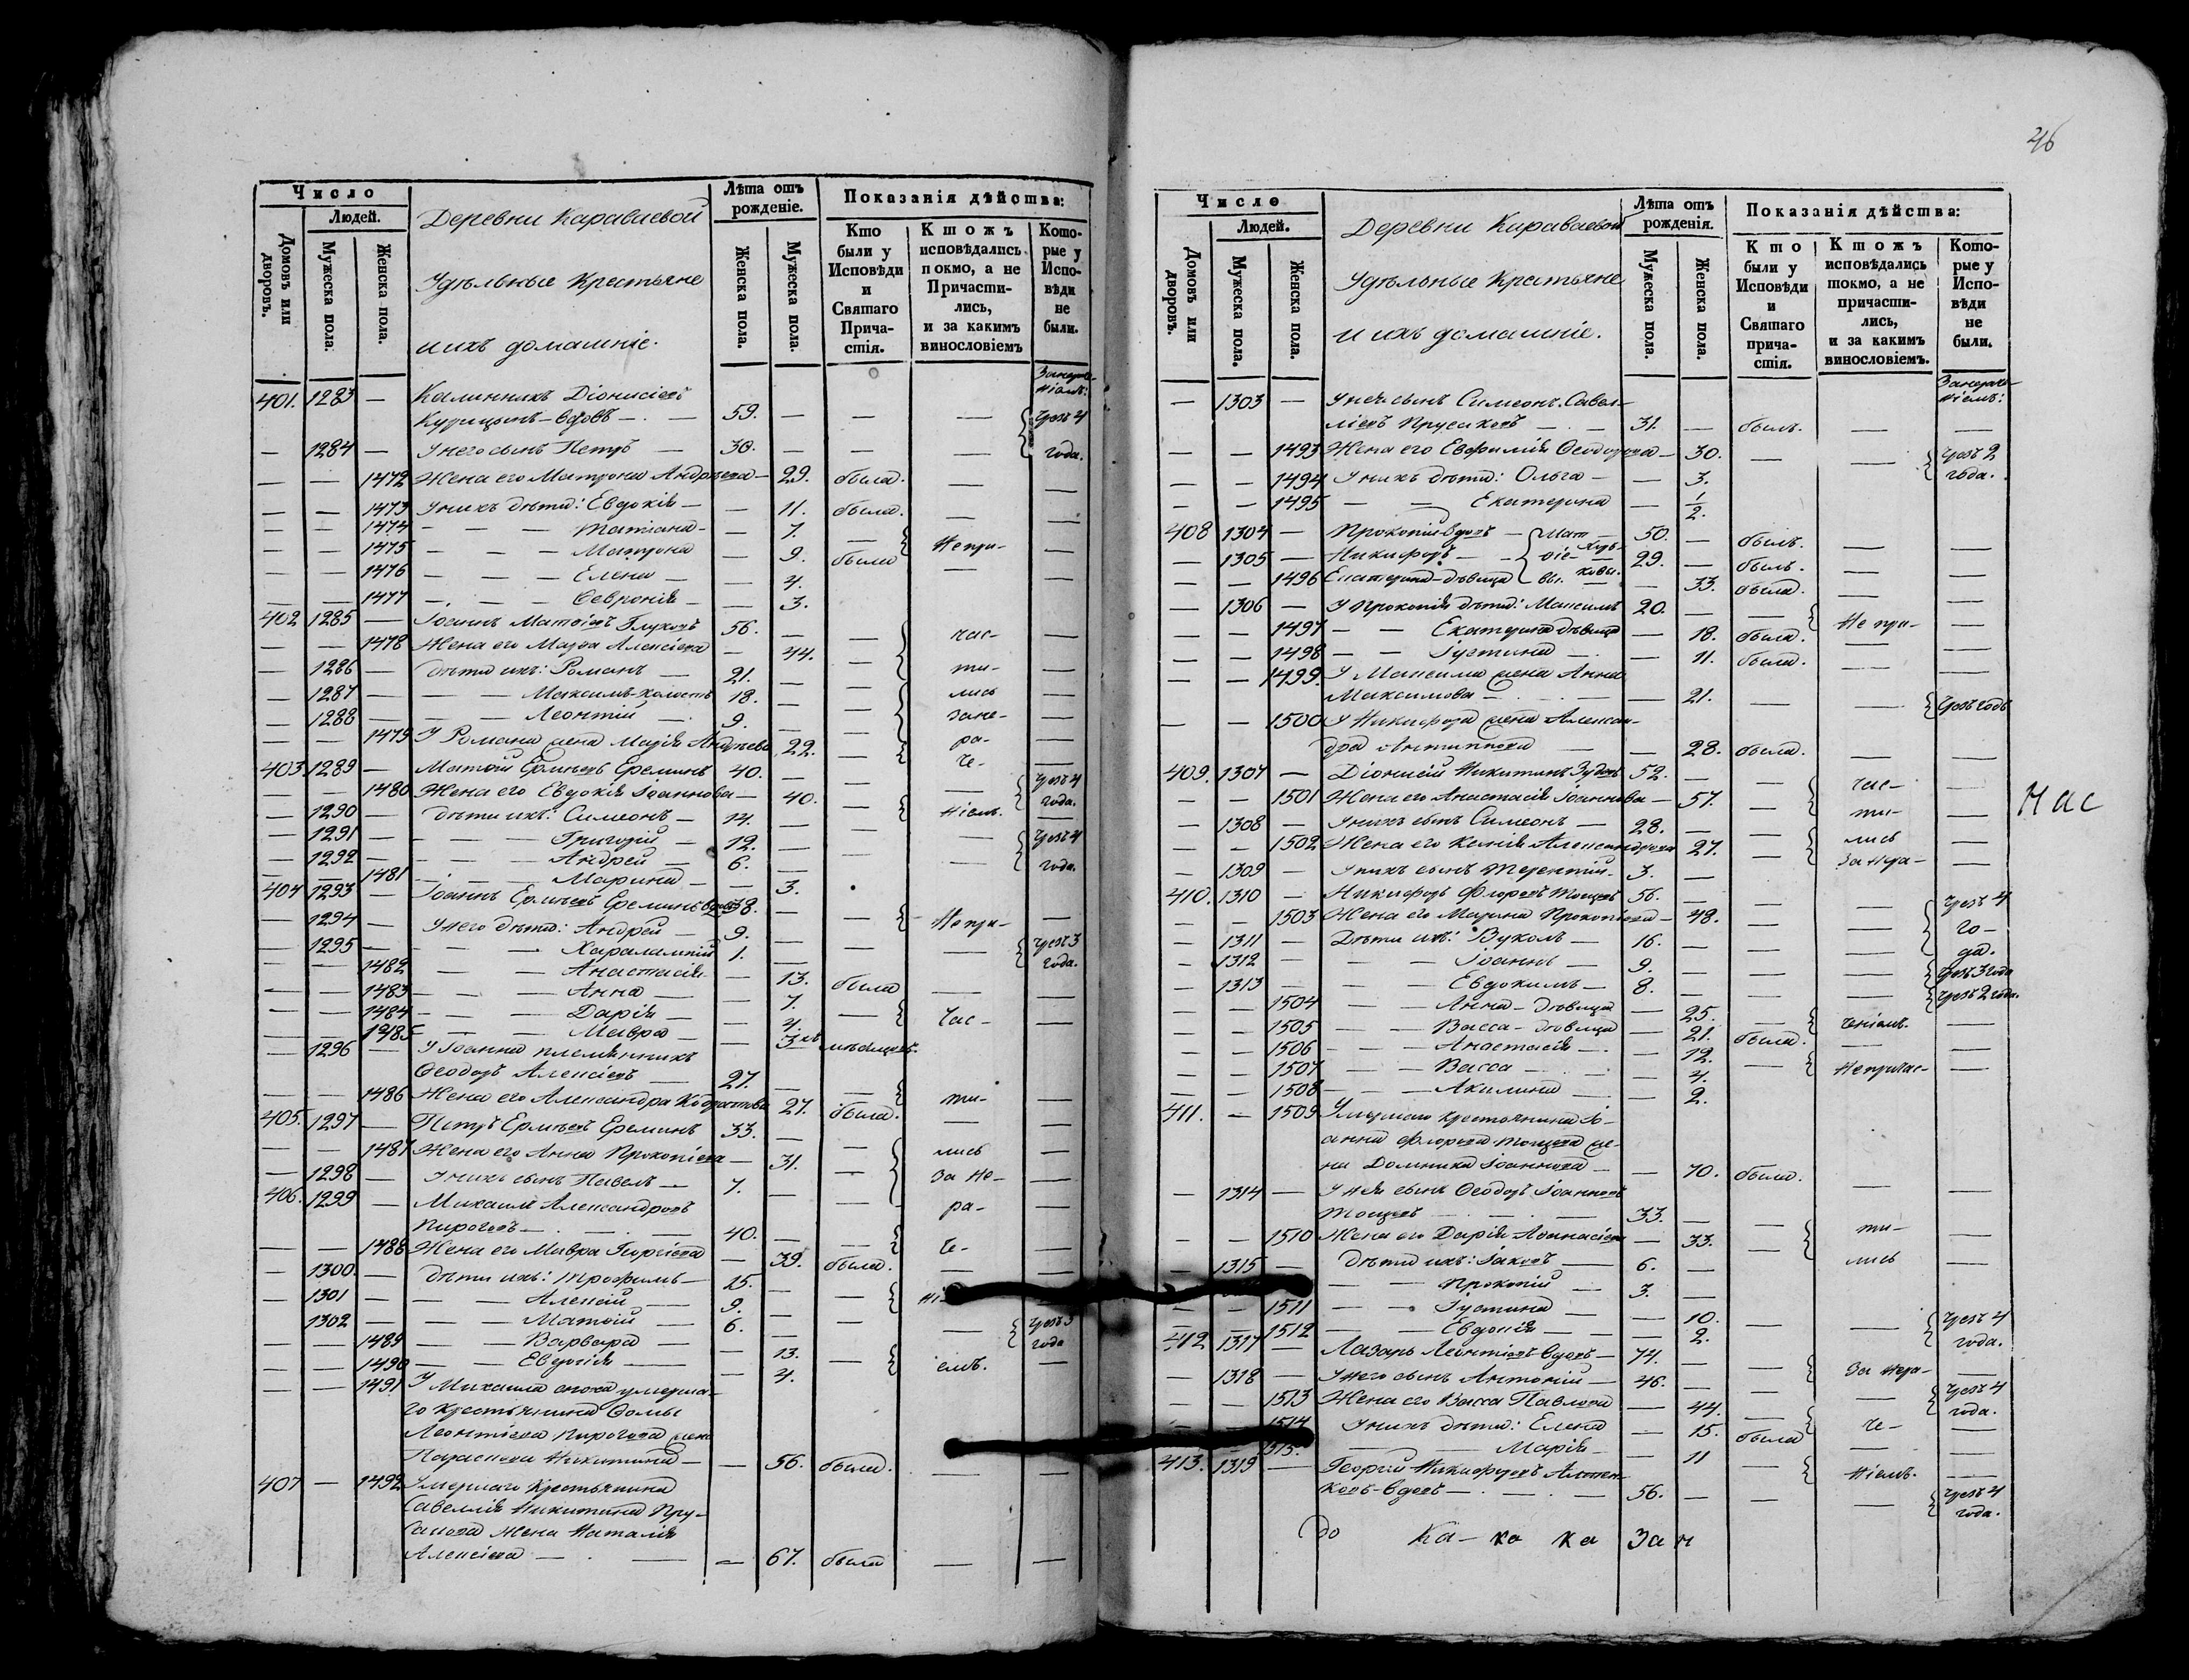 Число
Людей.
Домовъ или дворовъ.
Мужеска пола.
Женска пола.
Деревни Караваевой
Удѣльные Крестьяне
и ихъ домашніе.
Лѣта отъ рожденіе.
Женска пола.
Мужеска пола.
Показанія дѣйства:
Кто были у Исповѣди и Святаго Причастія.
Ктожъ исповѣдались покмо, а не Причастились, и за какимъ винословіемъ
Которые у Исповѣди не были.
401. 1283 — Калинникъ Діонисіевъ
Курицынъ - вдовъ — 59. — — — Чрезъ 4
— 1284 — У него сынъ Петръ — 30. — — — года.
— — 1472 Жена его Матрона Андреева — 29. была. — —
— — 1473 У нихъ дѣти: Евдокія — — 11. была. — —
— — 1474 — — — Татіана — — 7. —
— — 1475 — — — Матрона — 9. была Непри- —
— — 1476 — — — Елена — — 4. — —
— — 1477 — — — Февронія — — 3.
402 1285 — Іоаннъ Матѳіевъ Глуховъ 56. — — час- —
— — 1478 Жена его Марѳа Алексіева — 44. —
— 1286 — дѣти ихъ: Романъ — 21. — — ти- —
— 1287 — — — Максимъ-холостъ 18. — — лись —
— 1288 — — — Леонтій — 9. — — зане- —
— — 1479 У Романа жена Марія Андреева 22. — ра- —
403. 1289 — Матѳій Ермиевъ Ереминъ 40. — — че- —
— — 1480 Жена его Евдокія Іоаннова — 40. — — Чрезъ 4 года.
— 1290 — дѣти ихъ: Симеонъ — 14. — — ніемъ. —
— 1291 — — — Григорій — 12. — — Чрезъ 4
— 1292 — — — Андрей — 6. — — — года.
— — 1481 — — — Марина — — 3.
404 1293 — Іоаннъ Ермиевъ Ереминъ вдовъ 38. — — Непри- —
— 1294 — У него дѣти: Андрей — 9. — — — Чрезъ 3
— 1295 — — — Харалампій 1. — — года.
— — 1482 — — Анастасія — — 13. была — —
— — 1483 — — — Анна — — 7.
— — 1484 — — — Дарія — — 4. — Час- —
— — 1485 — — — Мавра — — 3хъ мѣсяцевъ.
— 1296 — У Іоанна племянникъ
Ѳеодоръ Алексіевъ — 27. — —
— — 1486 Жена его Александра 27. была. ти- —
405. 1297 — Петръ Ермиевъ Ереминъ 33. — —
— — 1487 Жена его Анна Прокопіева — 31. — лись —
— 1298 — У нихъ сынъ Павелъ — 7. — — За не- —
406. 1299 — Михаилъ Александровъ
Пироговъ — 40. — — ра- —
— — 1488 Жена его Мавра Георгіева — 39. была. че- —
— 1300. — дѣти ихъ: Трофимъ — 15. — — —
— 1301 — — — Алексій — 9. — — ні-
— 1302 — — — Матѳій — 6. — — Чрезъ 3
— — 1489 — — Варвара — — 13. — — года
— — 1490 — — Евдокія — — 4. — емъ. —
— — 1491 У Михаила сноха умерша-
го крестьянина Ѳомы
Леонтіева Пирогова жена
Параскева Никитина — — 56. была. — —
407 — 1492 Умершаго Крестьянина
Савеллія Никитина Пру-
сакова жена Наталія
Алексіева — — — 67. была — —
46
Число
Людей.
Домовъ или дворовъ.
Мужеска пола.
Женска пола.
Деревни Караваевой
Удѣльные Крестьяне
и ихъ домашніе.
Лѣта отъ рожденія.
Мужеска пола.
Женска пола.
Показанія дѣйства:
Кто были у Исповѣди и Святаго причастія.
Ктожъ исповѣдались токмо, а не причастились, и за какимъ винословіемъ.
Которые у Исповѣди не были.
— 1303 — У нея сынъ Симеонъ Савел-
ліевъ Прусаковъ — 31. — былъ. — —
— — 1493 Жена его Евфимія Ѳеодорова — 30. — — Чрезъ 2
— — 1494 У нихъ дѣти: Ольга — — 3. года.
— — 1495 — — Екатерина — 1/2.
408 1304 — Прокопій-вдовъ — Мат- 50. — былъ. — —
— 1305 — Никифоръ — ѳіе- 29. — былъ. — —
— — 1496 Екатерина-дѣвица вы. — 33. была. — —
— 1306 — У Прокопія дѣти: Максимъ 20. — — Не при- —
— — 1497 — — Екатерина дѣвица — 18. была. — —
— — 1498 — — Іустина — — 11. была. — —
— — 1499. У Максима жена Анна
Максимова — — 21. — — Чрезъ годъ
— — 1500 У Никифора жена Алексан-
дра — — 28. была. — —
409. 1307 — Діонисій Никитинъ Зудовъ 52. — — час- —
— — 1501 Жена его Анастасія Іоаннова — 57. — ти- — нас
— 1308 — У нихъ сынъ Симеонъ — 28. — — лись —
— — 1502 Жена его Ксенія Александрова 27. — За нера- —
— 1309 — У нихъ сынъ Терентій. 3. —
410. 1310 — Никифоръ Флоровъ Тощевъ 56. — — — Чрезъ 4
— — 1503 Жена его Марина Прокопіева — 48. — — го-
— 1311 — Дѣти ихъ: Вуколъ — 16. — — — да.
— 1312 — — — Іоаннъ — 9. — — — Чрезъ 3 года
— 1313 — — — Евдокимъ — 8. — — — Чрезъ 2 года.
— — 1504 — — Анна-дѣвица — 25. — ченіемъ. —
— — 1505 — — Васса-дѣвица — 21. была. — —
— — 1506 — — Анастасія — — 12. — Непричас- —
— — 1507 — — Васса — — 4.
— — 1508 — — Акилина — — 2.
411. — 1509 Умершаго крестьянина Іо-
анна Флорова Тощева же-
на Домника Іоаннова — — 70. была. — —
— 1314 — У нея сынъ Ѳеодоръ Іоанновъ
Тощевъ — 33. — — ти- —
— — 1510 Жена его Дарія Аѳанасіева — 33. — лись —
— 1315 — Дѣти ихъ: Іаковъ — 6. —
— — Прокопій — 3. —
— — 1511 — — Іустина — — 10. — — Чрезъ 4
— — 1512 — — Евдокія — — 2. года.
412 1317 — Лазарь Леонтіевъ вдовъ — 74. — — За нера- —
— 1318 — У него сынъ Антоній — 46. — — — Чрезъ 4
— — 1513 Жена его Васса Павлова — 44. — че- года.
— — 1514 У нихъ дѣти: Елена — 15. была — —
1515. — — Марія — — 11 — ніемъ. —
413. 1319 — Георгій Никифоровъ
вдовъ — 56. — — — Чрезъ 4 года.
до Ка- ка ка За н